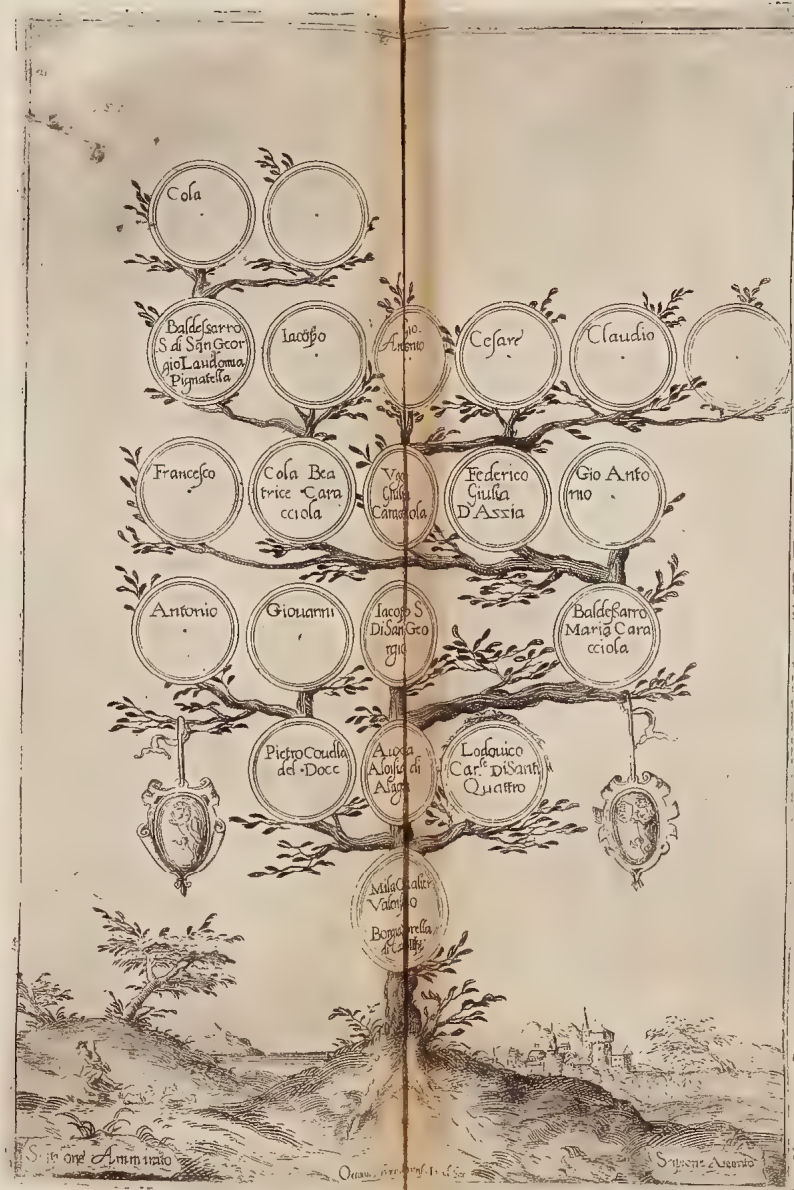 Cola
Baldessarro
S di San Geor
gio Laudomia
Pignatella
Iacopo
Gio.
Antonio
Cesare
Claudio
Francesco
Cola Bea
trice Cara
cciola
Caracciola
Federico
Giulia
D'Assia
Gio Anto
nio
Antonio
Giouanni
Iacopo S
Di San Geo
rgio
Baldessarro
Maria Cara
cciola
Pietro Couella
del Doce
Aloisia di
Lodouico
Car.le Di Santi
Quattro
Mila
Scipione Ammirato